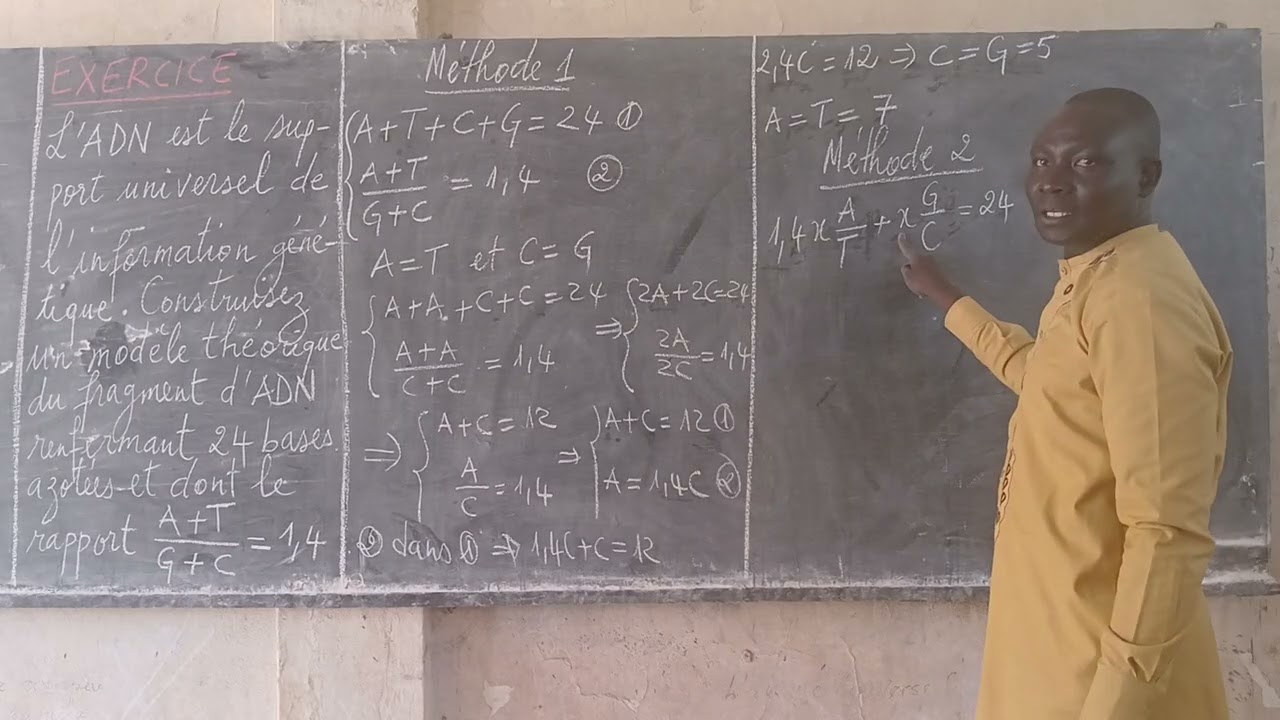 EXERCICE
L'ADN est le sup-
port universel de
l'information géné-
tique. Construisez
un modèle théorique
du fragment d'ADN
renfermant 24 bases
azotées et dont le
rapport A+T/G+C = 1,4
Méthode 1
{A+T+C+G = 24 ①
{A+T/G+C = 1,4 ②
A=T et C=G
{A+A+C+C = 24 ⇒ {2A+2C=24
{A+A/C+C = 1,4 {2A/2C = 1,4
⇒ {A+C = 12 ⇒ {A+C = 12 ①
{A/C = 1,4 {A = 1,4C ②
② dans ① ⇒ 1,4C+C = 12
2,4C = 12 ⇒ C = G = 5
A = T = 7
Méthode 2
1,4x A/T + x G/C = 24